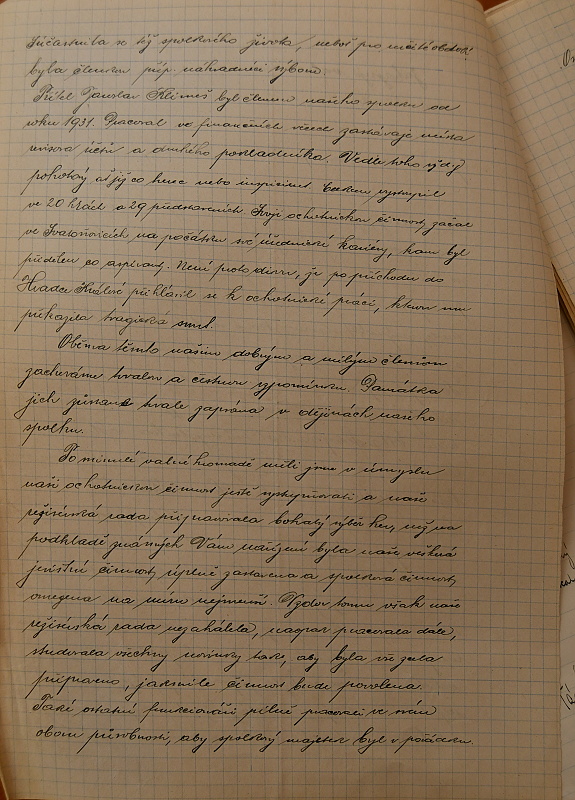 Súčastnila se též spolkového života, neboť pro určité období
byla členkou příp. náhradnicí výboru.
Přítel Jaroslav Klimeš byl členem našeho spolku od
roku 1931. Pracoval ve finančních věcech zastávaje místa
revisora účtů a druhého pokladníka. Vedle toho vždy
pohotový ať již co herec nebo inspicient. Celkem vystoupil
ve 20 hrách a 29 představeních. Svoji ochotnickou činnost, začal
ve Svatoňovicích na počátku své úřednické kariery, kam byl
přidělen co aspirant. Není proto divu, že po příchodu do
Hradce Králové přihlásil se k ochotnické práci, kterou mu
překazila tragická smrt.
Oběma těmto našim dobrým a milým členům
zachováme trvalou a čestnou vzpomínku. Památka
jich zůstane trvale zapsána v dějinách našeho
spolku.
Po minulé valné hromadě měli jsme v úmyslu
naši ochotnickou činnost ještě vystupňovati a naše
režisérská rada připravovala bohatý výběr her, než na
podkladě známých Vám nařízení byla naše veškerá
jevištní činnost, úplně zastavena a spolková činnost,
omezena na míru nejmenší. Vzdor tomu však naše
režisérská rada nezahálela, naopak pracovala dále,
studovala všechny novinky tak, aby byla vše zcela
připraveno, jakmile činnost bude povolena.
Také ostatní funkcionáři pilně pracovali ve svém
oboru působnosti, aby spolkový majetek byl v pořádku.